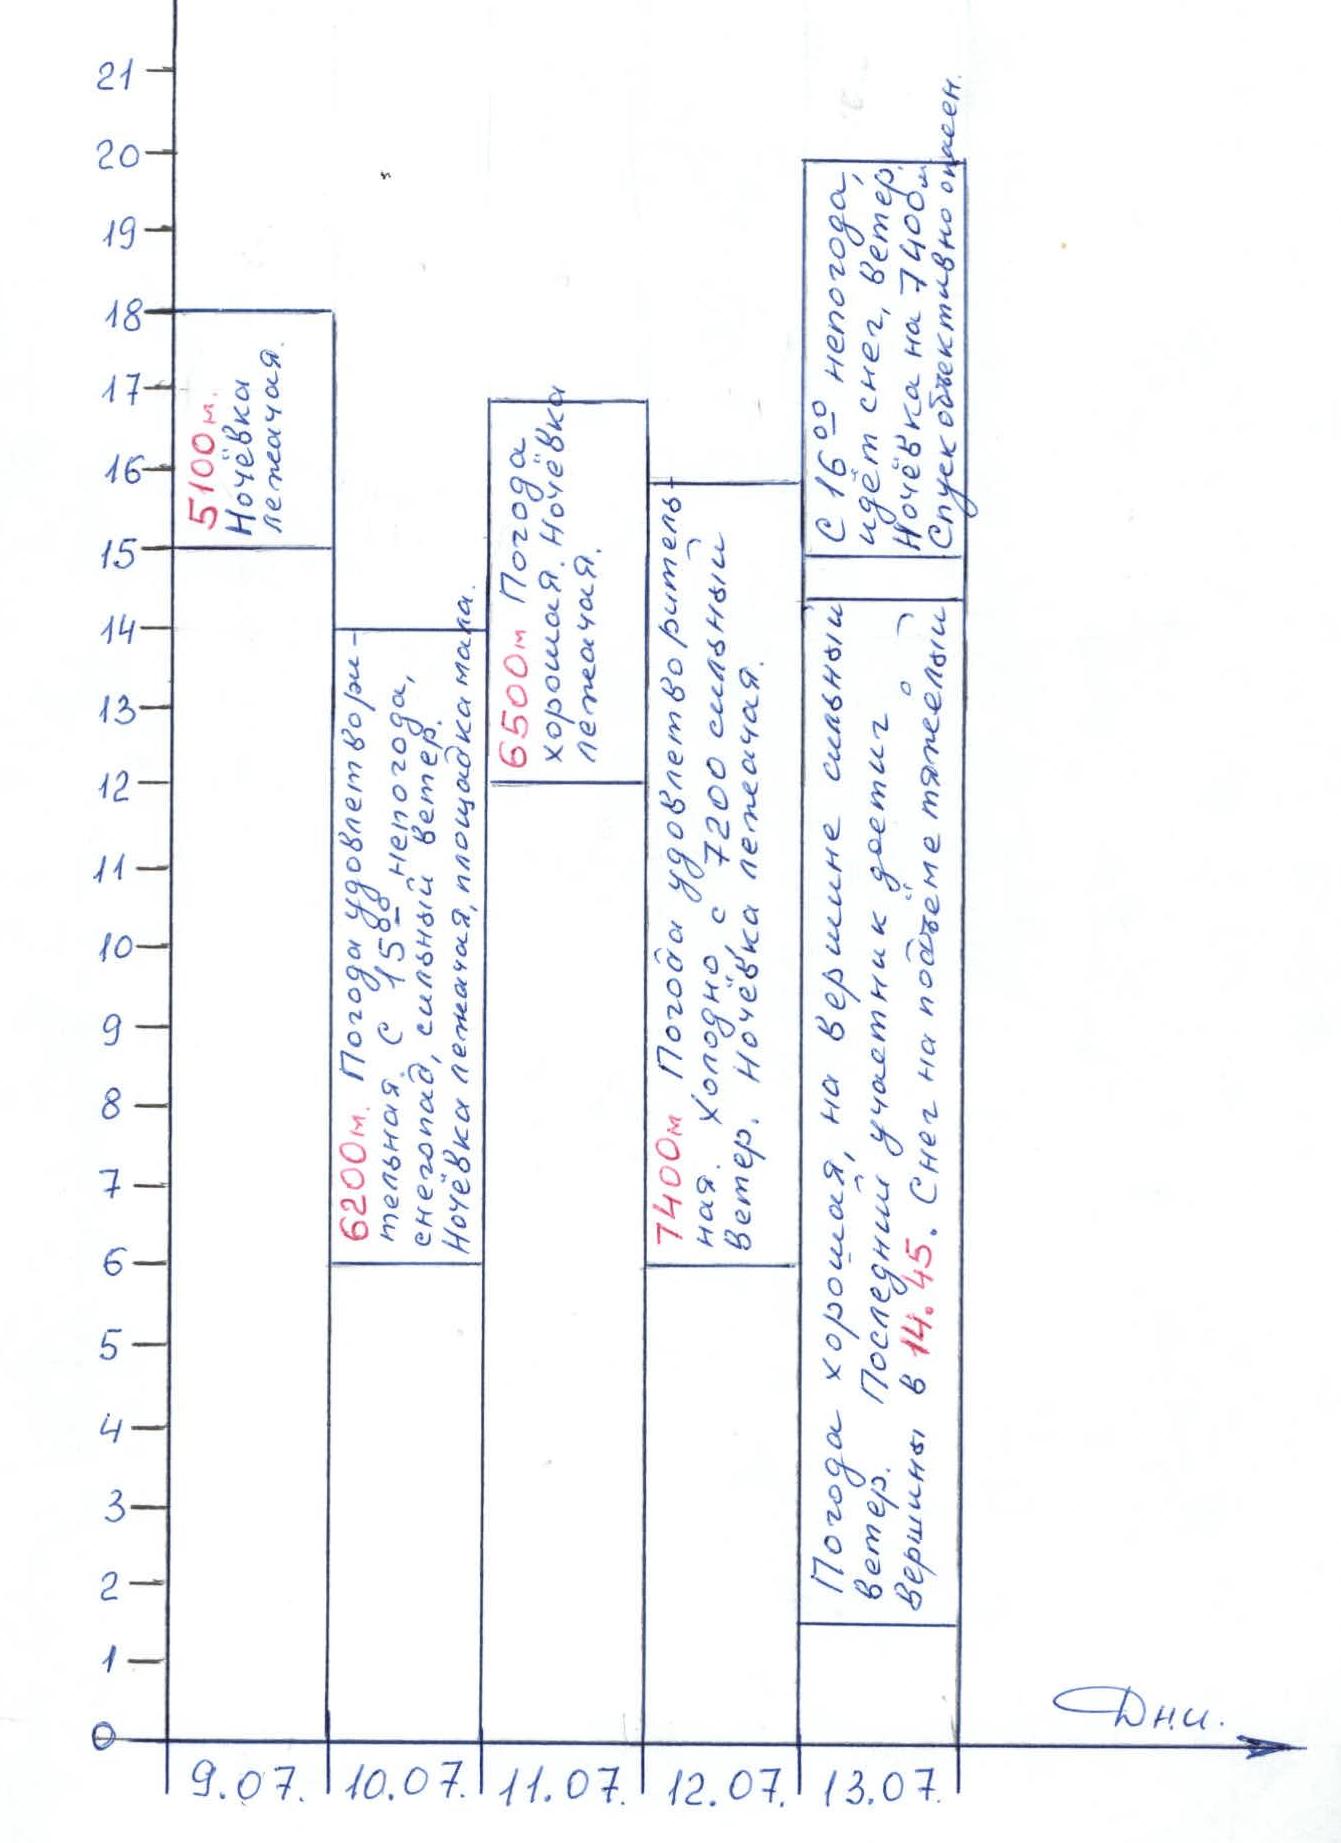 21
20
19
18
17
16
15
14
13
12
11
10
9
8
7
6
5
4
3
2
1
0
5100м.
Ночёвка
лежачая.
6200м. Погода удовлетвори-
тельная. С 15 00 непогода,
снегопад, сильный ветер.
Ночёвка лежачая, площадка мала.
6500м Погода
хорошая. Ночёвка
лежачая.
7400м Погода удовлетворитель-
ная. Холодно, с 7200 сильный
ветер. Ночёвка лежачая.
Погода хорошая, на вершине сильный
ветер. Последний участник достиг
вершины в 14.45. Снег на подъёме тяжёлый
С 16 00 непогода,
идёт снег, ветер.
Ночёвка на 7400м
Спуск объективно опасен.
Дни.
9.07. 10.07. 11.07. 12.07. 13.07.